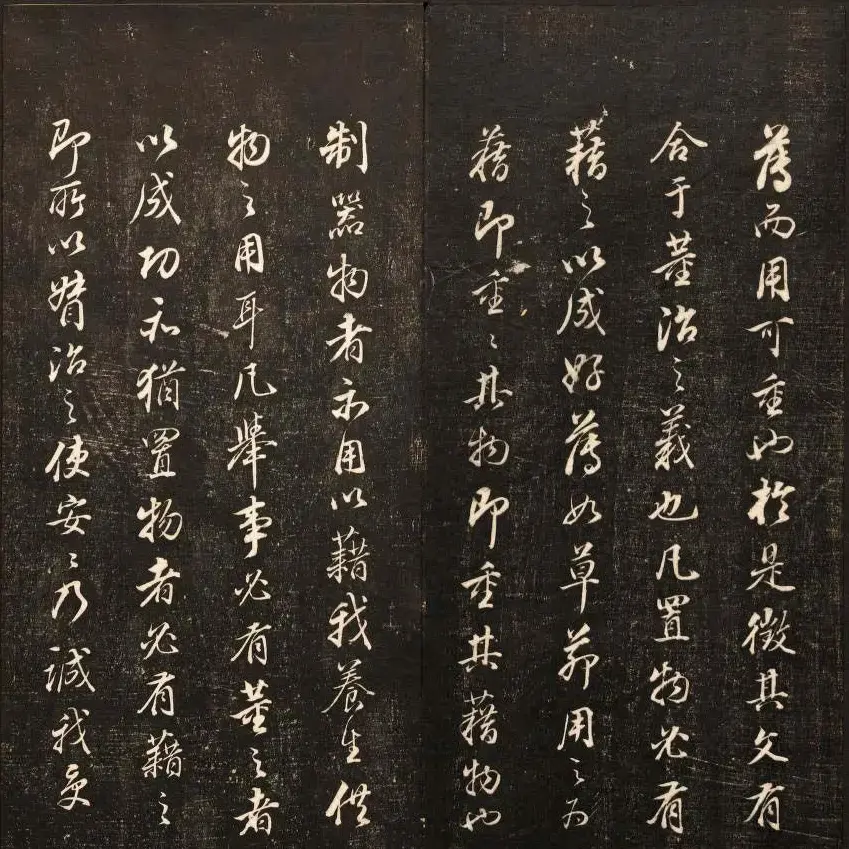 薄而用可重也於是徵其文有
合于董治之義也凡置物必有
藉之以成好薄如草茆用之为
藉即重〻其物即重其藉物也
制器物者亦用以藉我養生供
物之用耳凡舉事必有董之者
以成功亦猶置物者必有藉之
即所以督治之使安〻乃誠我受